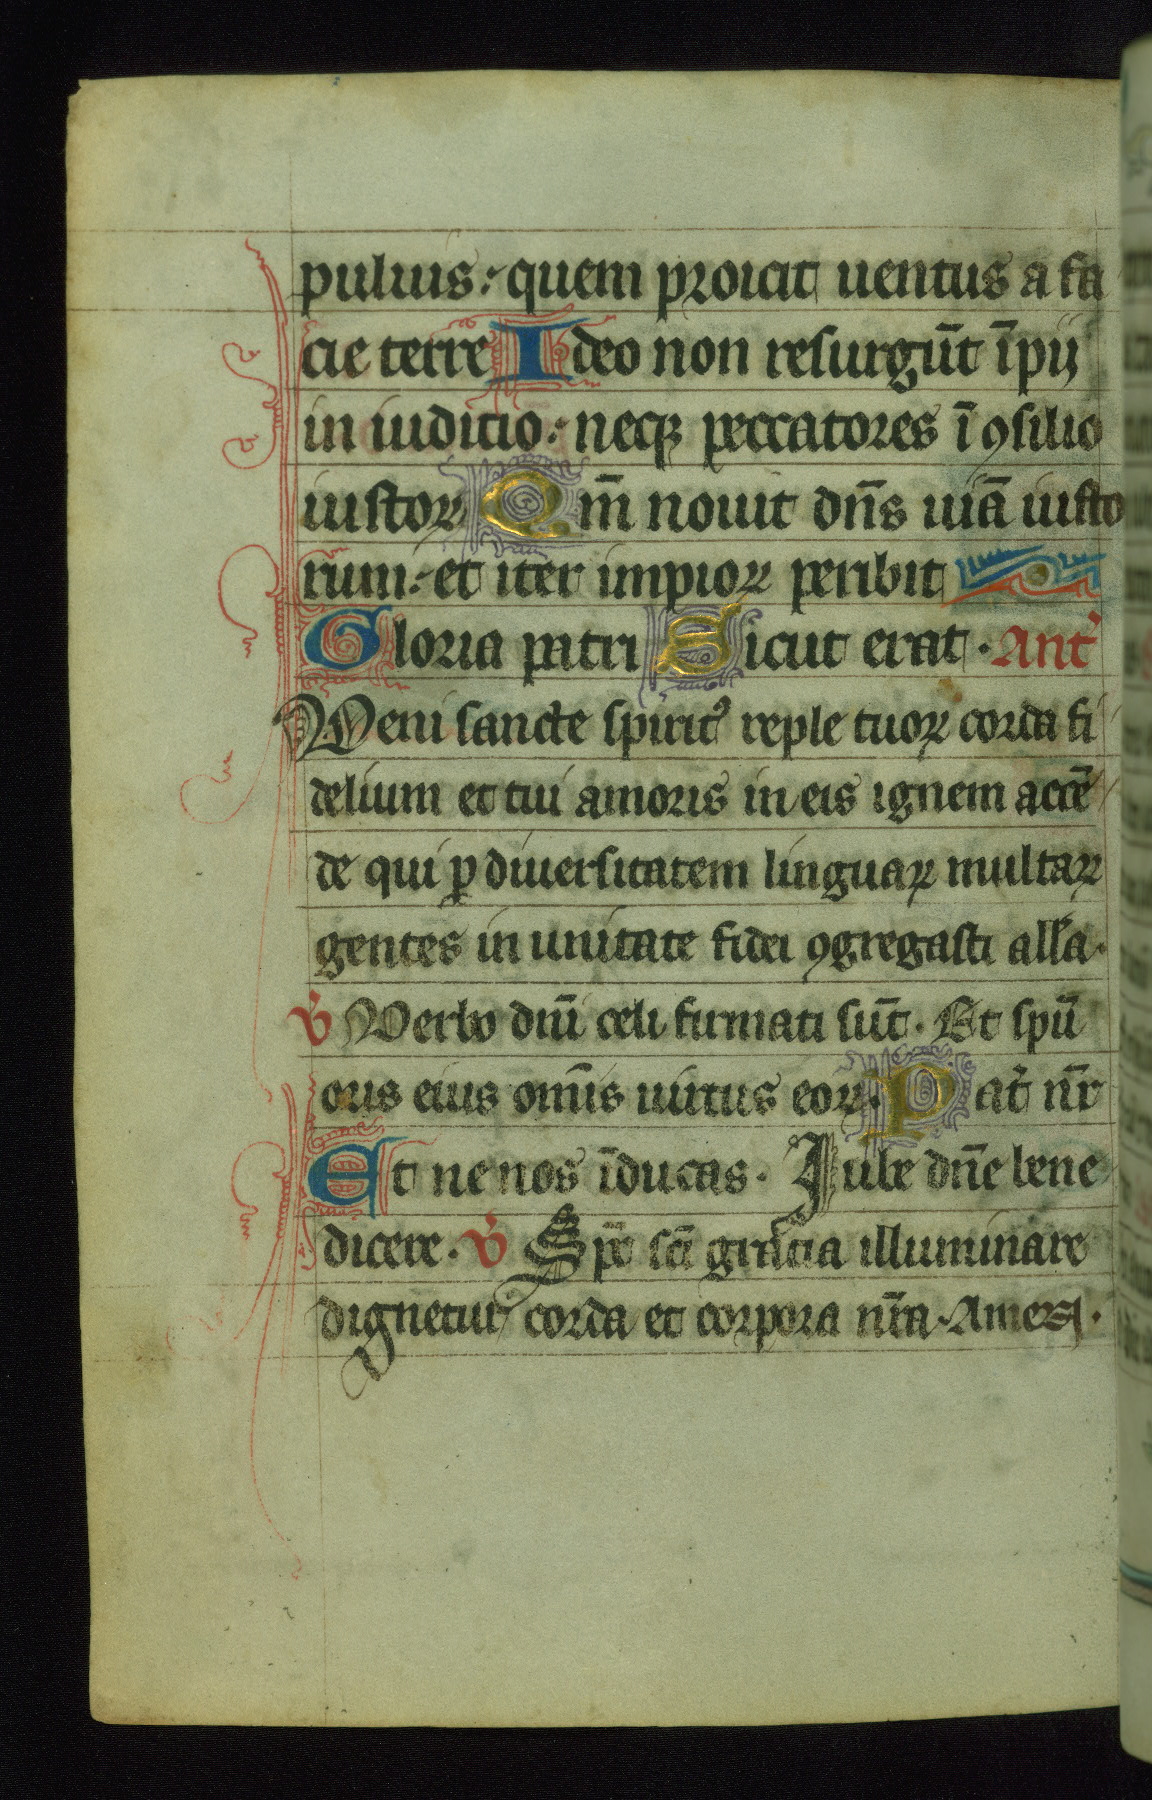 puluis : quem proicit uentus a fa
cie terre Ideo non resurgūt īpij
in iudicio : neqꝫ peccatores ī ꝯsilio
iustoꝝ Qm̄ nouit dn̄s uiā iusto
rum : et iter impioꝝ peribit
Gloria patri Sicut erat · Ant̉
Veni sancte spiritꝰ reple tuoꝝ corda fi
delium et tui amoris in eis ignem accē
de qui ꝑ diuersitatem linguaꝝ multaꝝ
gentes in unitate fidei ꝯgregasti all̉a ·
v̉ Verbo dn̄i celi firmati sūt · Et spū
oris eius om̄is uirtus eoꝝ · Pat̉ nr̄
Et ne nos īducas · Iube dn̄e bene
dicere · v̉ Sp̄c sc̄i gracia illuminare
dignetur corda et corpora nr̄a · Amen ·